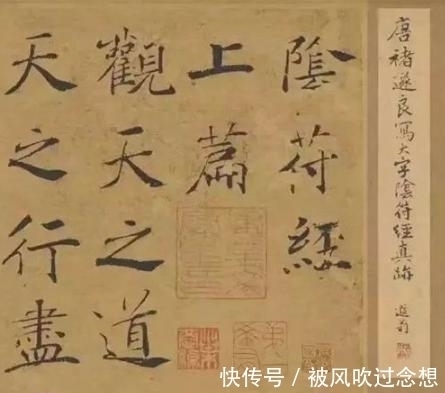 唐褚遂良寫大字陰符經真跡
遐翁
陰符經
上篇
觀天之道
天之行盡
快传号 / 被风吹过念想